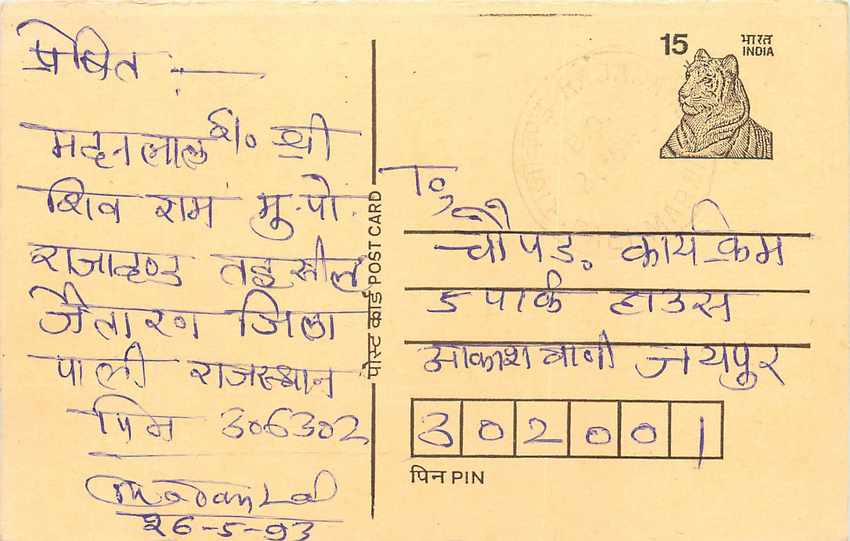 प्रेषित :—
मदनलाल S/o श्री
शिव राम मु. पो.
तहसील
जैतारण जिला
पाली राजस्थान
पिन 306302
Madan Lal
26-5-93
पोस्ट कार्ड POST CARD
15 भारत
INDIA
To,
चौपड़. कार्यक्रम
5 पार्क हाउस
आकाशवाणी जयपुर
302001
पिन PIN